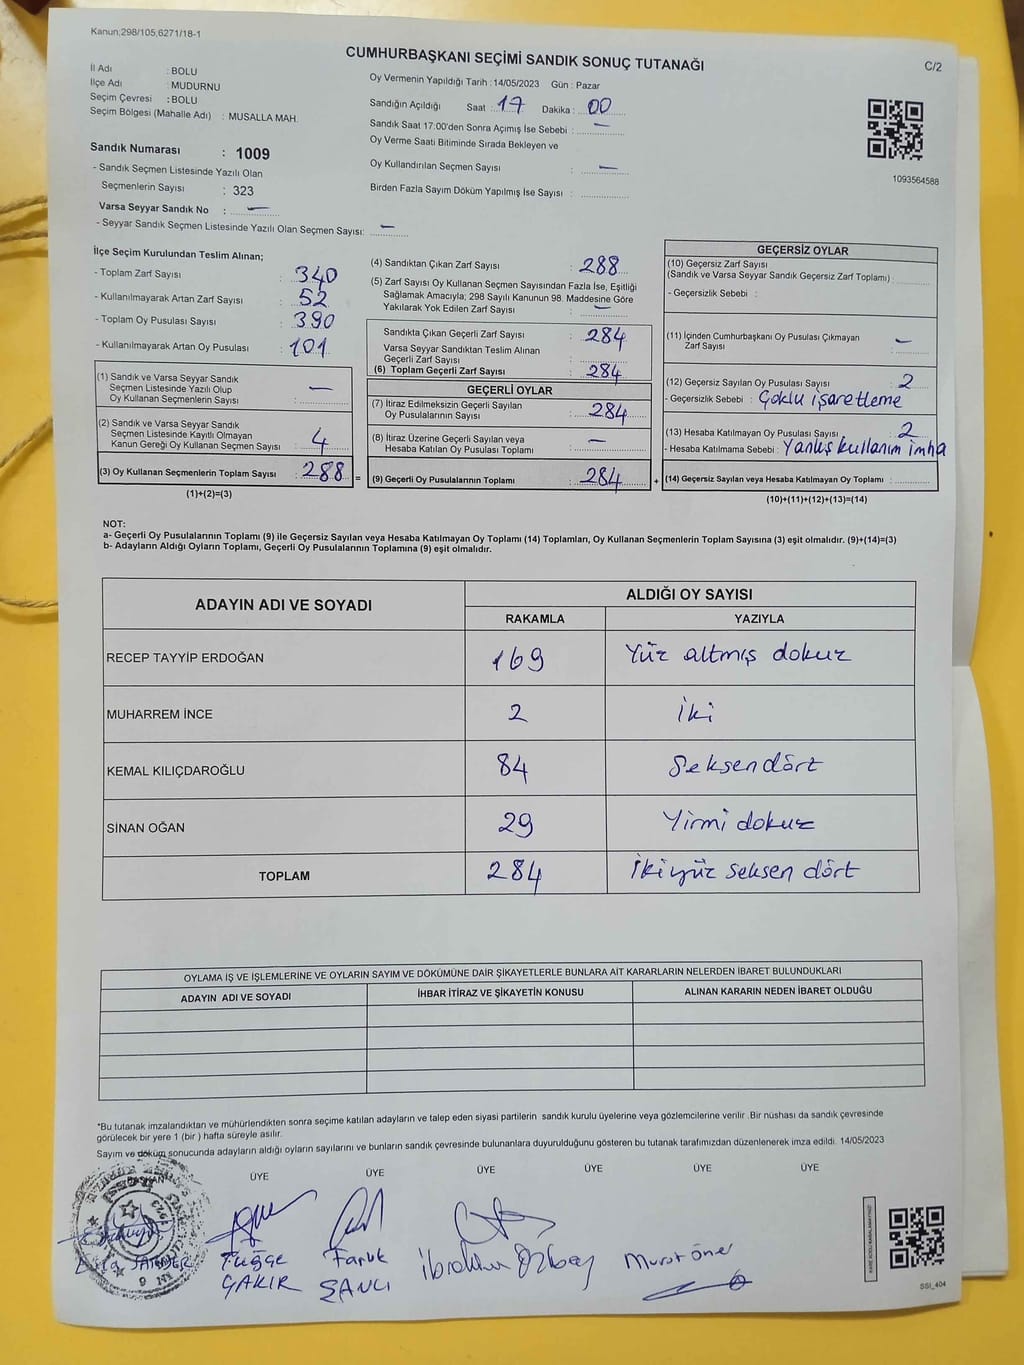 Kanun;298/105,6271/18-1
CUMHURBAŞKANI SEÇİMİ SANDIK SONUÇ TUTANAĞI
C/2
İl Adı : BOLU
İlçe Adı : MUDURNU
Seçim Çevresi : BOLU
Seçim Bölgesi (Mahalle Adı) : MUSALLA MAH.
Oy Vermenin Yapıldığı Tarih : 14/05/2023 Gün : Pazar
Sandığın Açıldığı Saat : 17 Dakika : 00
Sandık Saat 17:00'den Sonra Açımış İse Sebebi : —
Oy Verme Saati Bitiminde Sırada Bekleyen ve
Oy Kullandırılan Seçmen Sayısı : —
Birden Fazla Sayım Döküm Yapılmış İse Sayısı :
1093564588
Sandık Numarası : 1009
- Sandık Seçmen Listesinde Yazılı Olan
Seçmenlerin Sayısı : 323
Varsa Seyyar Sandık No : —
- Seyyar Sandık Seçmen Listesinde Yazılı Olan Seçmen Sayısı: —
İlçe Seçim Kurulundan Teslim Alınan;
- Toplam Zarf Sayısı : 340
- Kullanılmayarak Artan Zarf Sayısı : 52
- Toplam Oy Pusulası Sayısı : 390
- Kullanılmayarak Artan Oy Pusulası : 101
(1) Sandık ve Varsa Seyyar Sandık
Seçmen Listesinde Yazılı Olup
Oy Kullanan Seçmenlerin Sayısı : —
(2) Sandık ve Varsa Seyyar Sandık
Seçmen Listesinde Kayıtlı Olmayan
Kanun Gereği Oy Kullanan Seçmen Sayısı : 4
(3) Oy Kullanan Seçmenlerin Toplam Sayısı : 288 =
(1)+(2)=(3)
(4) Sandıktan Çıkan Zarf Sayısı : 288
(5) Zarf Sayısı Oy Kullanan Seçmen Sayısından Fazla İse, Eşitliği
Sağlamak Amacıyla; 298 Sayılı Kanunun 98. Maddesine Göre
Yakılarak Yok Edilen Zarf Sayısı : —
Sandıkta Çıkan Geçerli Zarf Sayısı : 284
Varsa Seyyar Sandıktan Teslim Alınan
Geçerli Zarf Sayısı :
(6) Toplam Geçerli Zarf Sayısı : 284
GEÇERLİ OYLAR
(7) İtiraz Edilmeksizin Geçerli Sayılan
Oy Pusulalarının Sayısı : 284
(8) İtiraz Üzerine Geçerli Sayılan veya
Hesaba Katılan Oy Pusulası Toplamı : —
(9) Geçerli Oy Pusulalarının Toplamı : 284 +
GEÇERSİZ OYLAR
(10) Geçersiz Zarf Sayısı
(Sandık ve Varsa Seyyar Sandık Geçersiz Zarf Toplamı) :
- Geçersizlik Sebebi :
(11) İçinden Cumhurbaşkanı Oy Pusulası Çıkmayan
Zarf Sayısı : —
(12) Geçersiz Sayılan Oy Pusulası Sayısı : 2
- Geçersizlik Sebebi : Çoklu işaretleme
(13) Hesaba Katılmayan Oy Pusulası Sayısı : 2
- Hesaba Katılmama Sebebi : Yanlış kullanım imha
(14) Geçersiz Sayılan veya Hesaba Katılmayan Oy Toplamı :
(10)+(11)+(12)+(13)=(14)
NOT:
a- Geçerli Oy Pusulalarının Toplamı (9) ile Geçersiz Sayılan veya Hesaba Katılmayan Oy Toplamı (14) Toplamları, Oy Kullanan Seçmenlerin Toplam Sayısına (3) eşit olmalıdır. (9)+(14)=(3)
b- Adayların Aldığı Oyların Toplamı, Geçerli Oy Pusulalarının Toplamına (9) eşit olmalıdır.
ADAYIN ADI VE SOYADI
ALDIĞI OY SAYISI
RAKAMLA YAZIYLA
RECEP TAYYİP ERDOĞAN 169 Yüz altmış dokuz
MUHARREM İNCE 2 İki
KEMAL KILIÇDAROĞLU 84 Seksen dört
SİNAN OĞAN 29 Yirmi dokuz
TOPLAM 284 İkiyüz seksen dört
OYLAMA İŞ VE İŞLEMLERİNE VE OYLARIN SAYIM VE DÖKÜMÜNE DAİR ŞİKAYETLERLE BUNLARA AİT KARARLARIN NELERDEN İBARET BULUNDUKLARI
ADAYIN ADI VE SOYADI İHBAR İTİRAZ VE ŞİKAYETİN KONUSU ALINAN KARARIN NEDEN İBARET OLDUĞU
*Bu tutanak imzalandıktan ve mühürlendikten sonra seçime katılan adayların ve talep eden siyasi partilerin sandık kurulu üyelerine veya gözlemcilerine verilir .Bir nüshası da sandık çevresinde
görülecek bir yere 1 (bir ) hafta süreyle asılır.
Sayım ve döküm sonucunda adayların aldığı oyların sayılarını ve bunların sandık çevresinde bulunanlara duyurulduğunu gösteren bu tutanak tarafımızdan düzenlenerek imza edildi. 14/05/2023
BAŞKAN ÜYE ÜYE ÜYE ÜYE ÜYE ÜYE
Tuğçe Faruk İbrahim Özbay Murat Öner
ÇAKIR ŞANLI
SSI_404